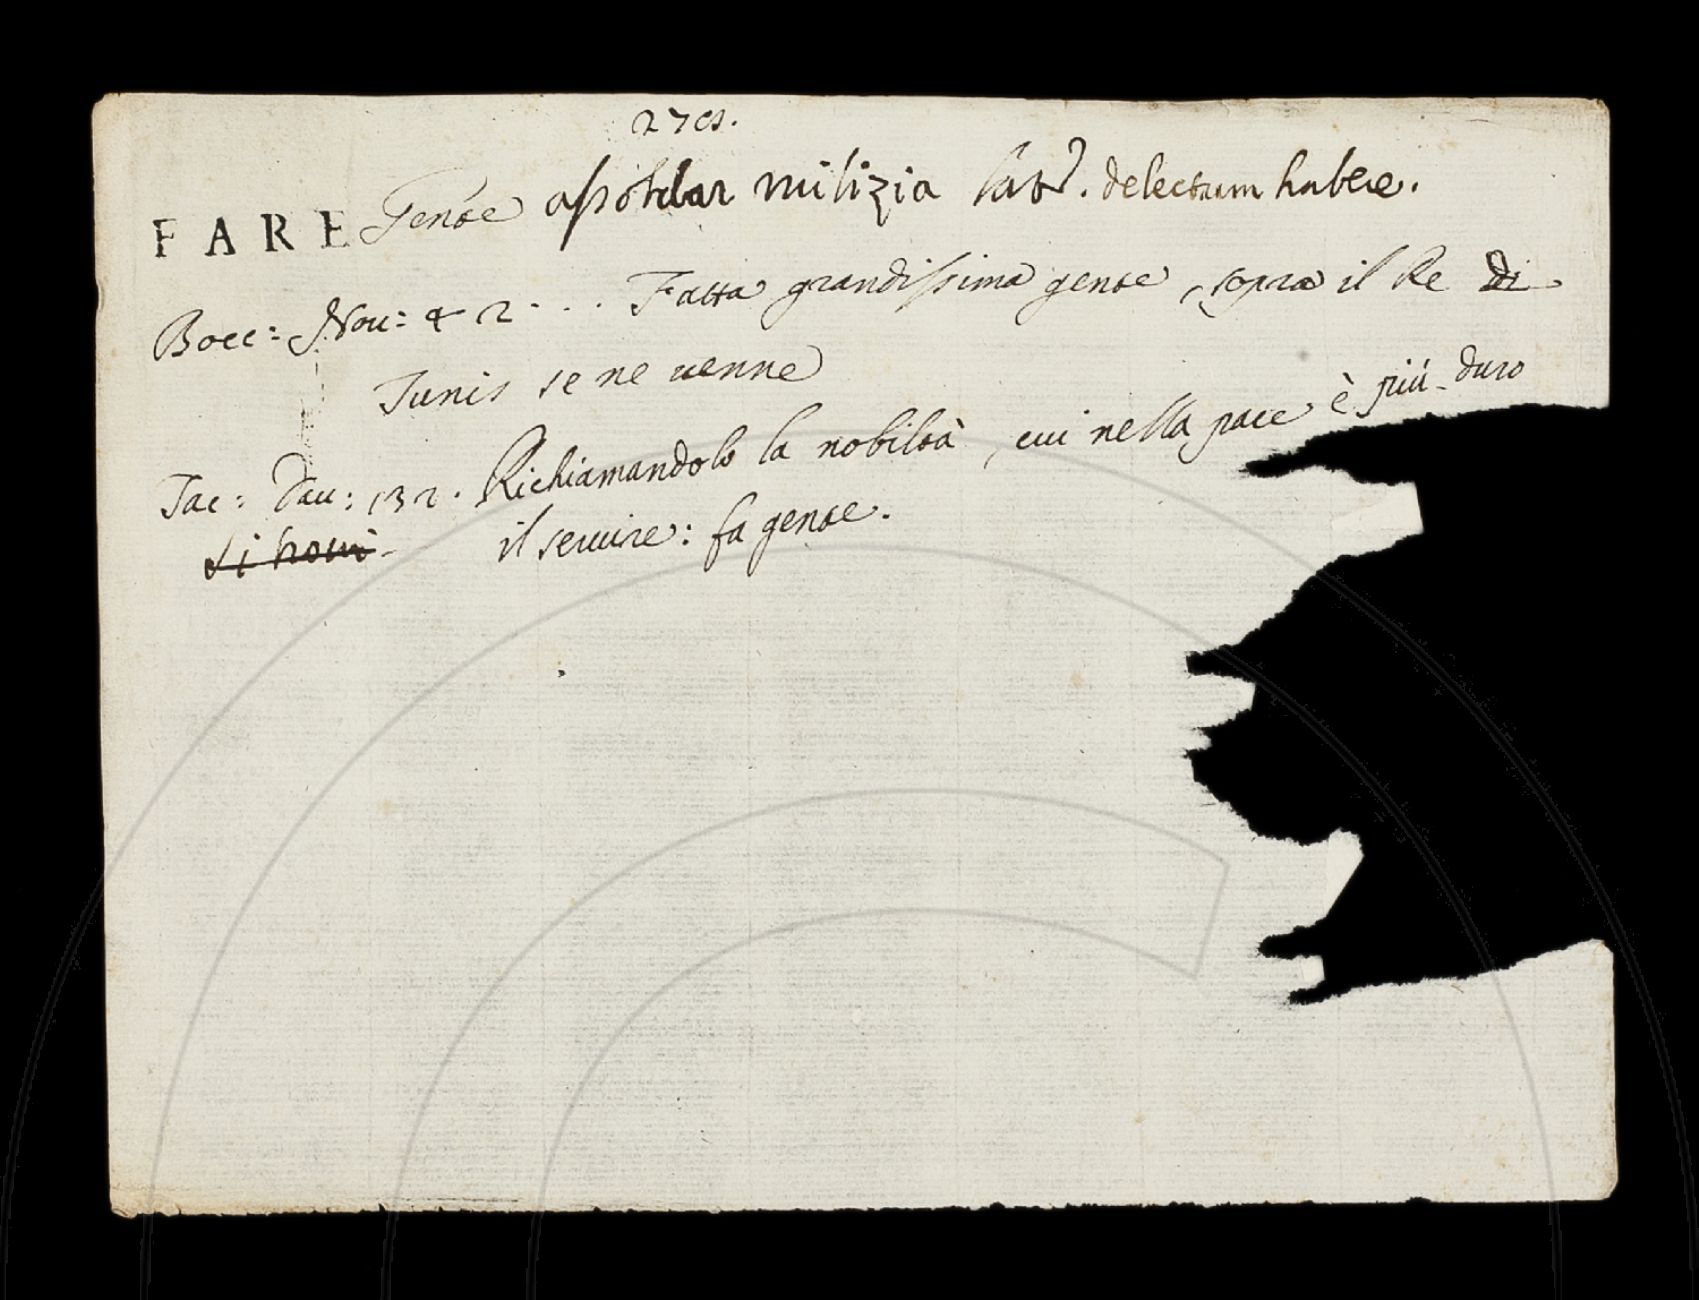 FARE Gente assoldar milizia lat. delectum habere.
Bocc: Nou: 42 . . . Fatta grandissima gente, sopra il Re di
Tunis se ne uenne
Tac: Dau: 132. Richiamandolo la nobiltà, cui nella pace è più duro
il seruire: fa gente.